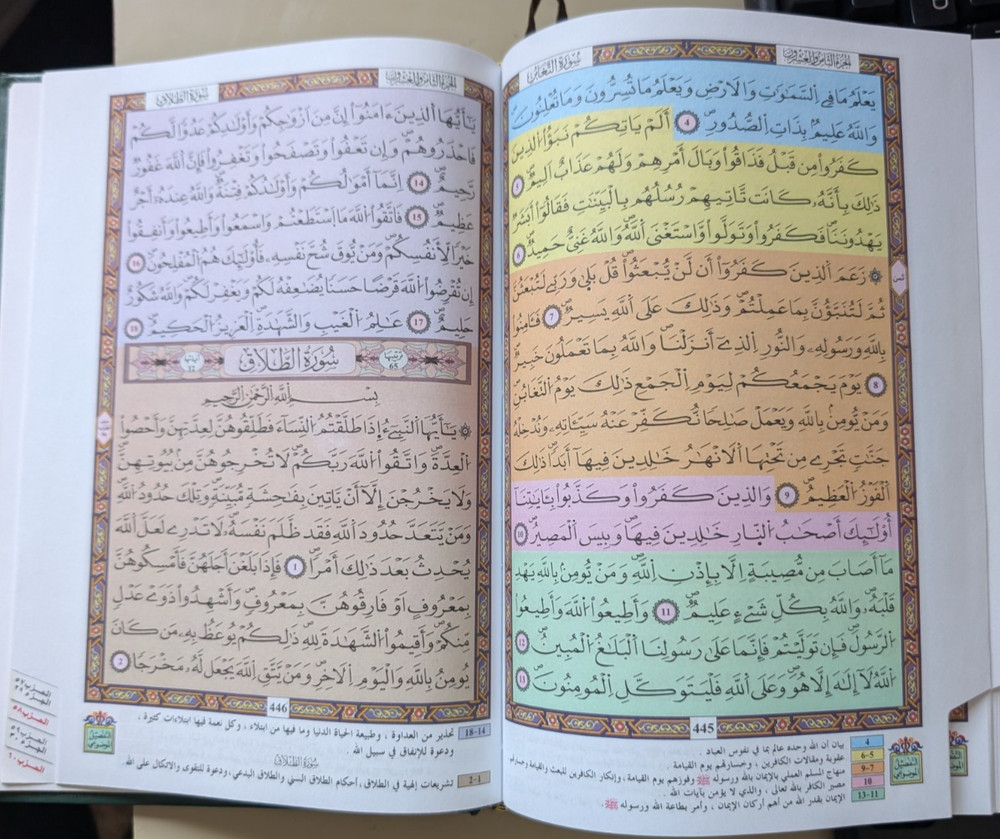 الجزء الثامن والعشرون
سورة التغابن
يَعْلَمُ مَا فِي السَّمَٰوَٰتِ وَالَارْضِ وَيَعْلَمُ مَا تُسِرُّونَ وَمَا تُعْلِنُونَ
وَاللَّهُ عَلِيمٌ بِذَاتِ الصُّدُورِ 4 أَلَمْ يَاتِكُمْ نَبَؤُا الذِينَ
كَفَرُوا مِن قَبْلُ فَذَاقُوا وَبَالَ أَمْرِهِمْ وَلَهُمْ عَذَابٌ الِيمٌ 5
ذَٰلِكَ بِأَنَّهُ كَانَت تَّاتِيهِمْ رُسُلُهُم بِالْبَيِّنَٰتِ فَقَالُوا أَبَشَرٌ
يَهْدُونَنَا فَكَفَرُوا وَتَوَلَّوا وَّاسْتَغْنَى اللَّهُ وَاللَّهُ غَنِيٌّ حَمِيدٌ 6
زَعَمَ الذِينَ كَفَرُوا أَن لَّنْ يُّبْعَثُوا قُلْ بَلَىٰ وَرَبِّي لَتُبْعَثُنَّ
ثُمَّ لَتُنَبَّؤُنَّ بِمَا عَمِلْتُمْ وَذَٰلِكَ عَلَى اللَّهِ يَسِيرٌ 7 فَـَٔامِنُوا
بِاللَّهِ وَرَسُولِهِ وَالنُّورِ الذِي أَنزَلْنَا وَاللَّهُ بِمَا تَعْمَلُونَ خَبِيرٌ
8 يَوْمَ يَجْمَعُكُمْ لِيَوْمِ الْجَمْعِ ذَٰلِكَ يَوْمُ التَّغَابُنِ
وَمَنْ يُّومِنْ بِاللَّهِ وَيَعْمَلْ صَٰلِحًا نُّكَفِّرْ عَنْهُ سَيِّـَٔاتِهِ وَنُدْخِلْهُ
جَنَّٰتٍ تَجْرِي مِن تَحْتِهَا الَانْهَٰرُ خَٰلِدِينَ فِيهَا أَبَدًا ذَٰلِكَ
الْفَوْزُ الْعَظِيمُ 9 وَالذِينَ كَفَرُوا وَكَذَّبُوا بِـَٔايَٰتِنَا
أُوْلَٰئِكَ أَصْحَٰبُ النّارِ خَٰلِدِينَ فِيهَا وَبِيسَ الْمَصِيرُ 10
مَا أَصَابَ مِن مُّصِيبَةٍ اِلَّا بِإِذْنِ اللَّهِ وَمَنْ يُّومِنْ بِاللَّهِ يَهْدِ
قَلْبَهُ وَاللَّهُ بِكُلِّ شَيْءٍ عَلِيمٌ 11 وَأَطِيعُوا اللَّهَ وَأَطِيعُوا
الرَّسُولَ فَإِن تَوَلَّيْتُمْ فَإِنَّمَا عَلَىٰ رَسُولِنَا الْبَلَٰغُ الْمُبِينُ 12
اللَّهُ لَا إِلَٰهَ إِلَّا هُوَ وَعَلَى اللَّهِ فَلْيَتَوَكَّلِ الْمُومِنُونَ 13
445
4 بيان أن الله وحده عالم بما في نفوس العباد .
6-5 عقوبة ومقالات الكافرين ، وخسارتهم يوم القيامة .
9-7 منهاج المسلم العملي بالإيمان بالله ورسوله ﷺ وفوزهم يوم القيامة، وإنكار الكافرين للبعث والقيامة
10 مصير الكافر بالله تعالى ، والذي لا يؤمن بآيات الله .
13-11 الإيمان بقدر الله من أهم أركان الإيمان ، وأمر بطاعة الله ورسوله ﷺ.
التفصيل الموضوعي
الجزء الثامن والعشرون
سورة الطلاق
يَٰأَيُّهَا الذِينَ ءَامَنُوا إِنَّ مِنَ اَزْوَٰجِكُمْ وَأَوْلَٰدِكُمْ عَدُوًّا لَّكُمْ
فَاحْذَرُوهُمْ وَإِن تَعْفُوا وَتَصْفَحُوا وَتَغْفِرُوا فَإِنَّ اللَّهَ غَفُورٌ
رَّحِيمٌ 14 اِنَّمَا أَمْوَٰلُكُمْ وَأَوْلَٰدُكُمْ فِتْنَةٌ وَاللَّهُ عِندَهُ أَجْرٌ
عَظِيمٌ 15 فَاتَّقُوا اللَّهَ مَا اَسْتَطَعْتُمْ وَاسْمَعُوا وَأَطِيعُوا وَأَنفِقُوا
خَيْرًا لِّأَنفُسِكُمْ وَمَنْ يُّوقَ شُحَّ نَفْسِهِ فَأُوْلَٰئِكَ هُمُ الْمُفْلِحُونَ 16
إِن تُقْرِضُوا اللَّهَ قَرْضًا حَسَنًا يُضَٰعِفْهُ لَكُمْ وَيَغْفِرْ لَكُمْ وَاللَّهُ شَكُورٌ
حَلِيمٌ 17 عَٰلِمُ الْغَيْبِ وَالشَّهَٰدَةِ الْعَزِيزُ الْحَكِيمُ 18
ترتيبها 65
سورة الطلاق
آياتها 12
بِسْمِ اللَّهِ الرَّحْمَٰنِ الرَّحِيمِ
يَٰأَيُّهَا النَّبِيءُ إِذَا طَلَّقْتُمُ النِّسَاءَ فَطَلِّقُوهُنَّ لِعِدَّتِهِنَّ وَأَحْصُوا
الْعِدَّةَ وَاتَّقُوا اللَّهَ رَبَّكُمْ لَا تُخْرِجُوهُنَّ مِنْ بُيُوتِهِنَّ
وَلَا يَخْرُجْنَ إِلَّا أَنْ يَّاتِينَ بِفَٰحِشَةٍ مُّبَيِّنَةٍ وَتِلْكَ حُدُودُ اللَّهِ
وَمَنْ يَّتَعَدَّ حُدُودَ اللَّهِ فَقَد ظَّلَمَ نَفْسَهُ لَا تَدْرِي لَعَلَّ اللَّهَ
يُحْدِثُ بَعْدَ ذَٰلِكَ أَمْرًا 1 فَإِذَا بَلَغْنَ أَجَلَهُنَّ فَأَمْسِكُوهُنَّ
بِمَعْرُوفٍ اَوْ فَارِقُوهُنَّ بِمَعْرُوفٍ وَأَشْهِدُوا ذَوَيْ عَدْلٍ
مِّنكُمْ وَأَقِيمُوا الشَّهَٰدَةَ لِلَّهِ ذَٰلِكُمْ يُوعَظُ بِهِ مَن كَانَ
يُومِنُ بِاللَّهِ وَالْيَوْمِ الَاخِرِ وَمَنْ يَّتَّقِ اللَّهَ يَجْعَل لَّهُ مَخْرَجًا 2
446
18-14 تحذير من العداوة ، وطبيعة الحياة الدنيا وما فيها من ابتلاء ، وكل نعمة فيها ابتلاءات كثيرة ،
ودعوة للإنفاق في سبيل الله .
سورة الطلاق
2-1 تشريعات إلهية في الطلاق، أحكام الطلاق السني والطلاق البدعي، ودعوة للتقوى والاتكال على الله .
التفصيل الموضوعي